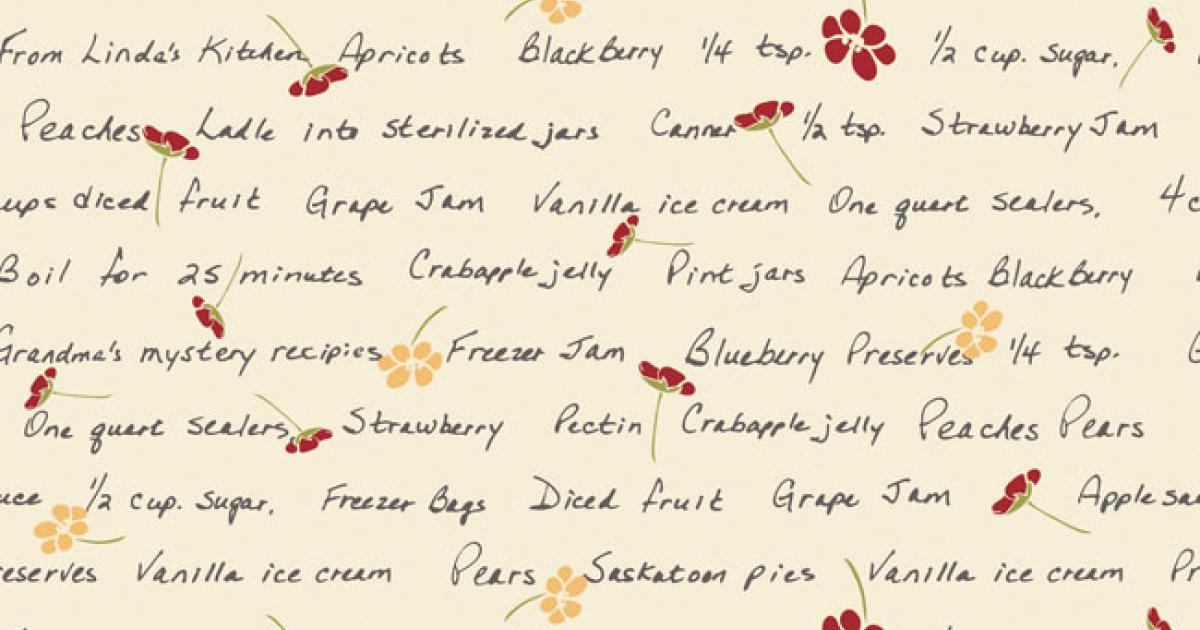 From Linda's Kitchen Apricots Blackberry 1/4 tsp. 1/2 cup. Sugar,
Peaches Ladle into sterilized jars Canner 1/2 tsp. Strawberry Jam
ups diced fruit Grape Jam Vanilla ice cream One quart sealers, 4 c
Boil for 25 minutes Crabapple jelly Pint jars Apricots Blackberry
Grandma's mystery recipies Freezer Jam Blueberry Preserves 1/4 tsp. G
One quart sealers, Strawberry Pectin Crabapple jelly Peaches Pears
uce 1/2 cup. Sugar, Freezer Bags Diced fruit Grape Jam Apple sau
eserves Vanilla ice cream Pears Saskatoon pies Vanilla ice cream Pr